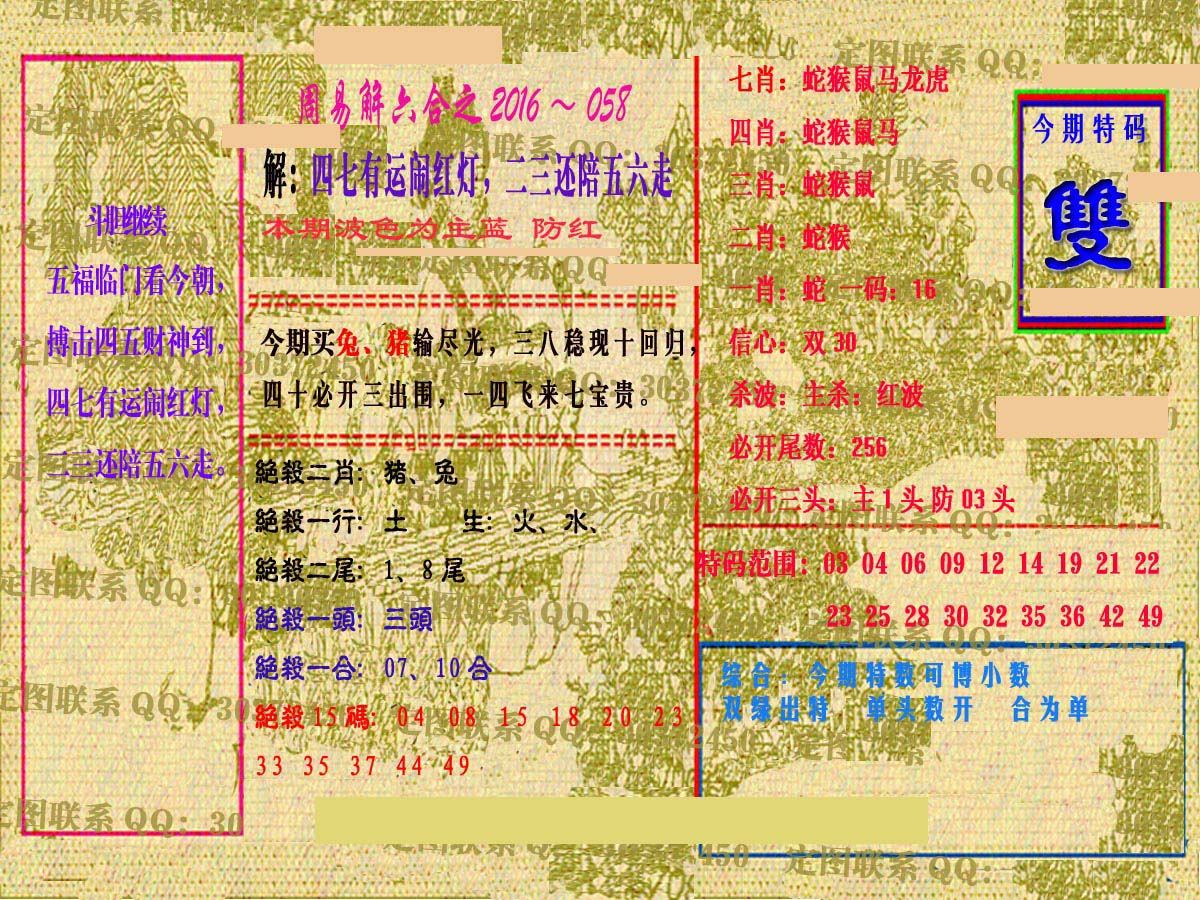 周易解六合之 2016 ～ 058
解：四七有运闹红灯，二三还陪五六走
本期波色为主蓝 防红
继续
五福临门看今朝，
搏击四五财神到，
四七有运闹红灯，
二三还陪五六走。
今期买兔、猪输尽光，三八稳现十回归，
四十必开三出围，一四飞来七宝贵。
絕殺二肖：猪、兔
絕殺一行：土 生：火、水、
絕殺二尾：1、8 尾
絕殺一頭：三頭
絕殺一合：07、10 合
絕殺 15 碼：04 08 15 18 20 23
33 35 37 44 49
七肖：蛇猴鼠马龙虎
四肖：蛇猴鼠马
三肖：蛇猴鼠
二肖：蛇猴
一肖：蛇 一码：16
信心：双 30
杀波：主杀：红波
必开尾数：256
必开三头：主 1 头 防 03 头
今期特码
雙
特码范围：03 04 06 09 12 14 19 21 22
23 25 28 30 32 35 36 42 49
综合：今期特数可博小数
双绿出特 单头数开 合为单
定图联系 QQ：